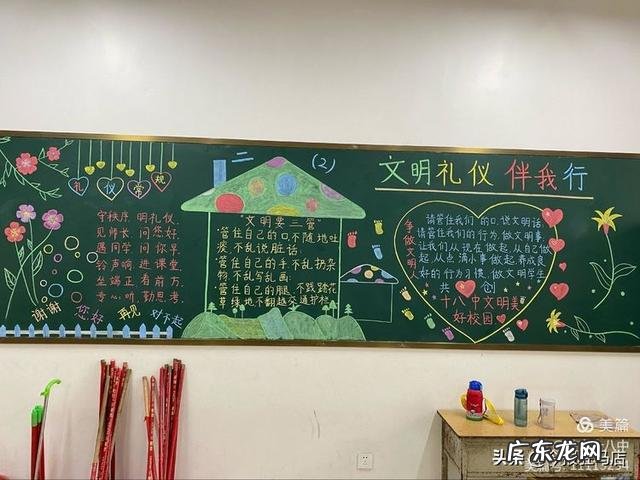 礼仪常规
守秩序,明礼仪,
见师长,问您好,
遇同学,问你早,
铃声响,进课堂,
坐端正,看前方,
专心听,勤思考.
谢谢
您好
再见
对不起
二 (2)
“文明要三管”
管住自己的口.不随地吐
痰,不乱说脏话.
管住自己的手.不乱扔杂
物.不乱写乱画.
管住自己的腿.不践踏花
草绿地不翻越交通护栏
文明礼仪 伴我行
争做文明人
请管住我们的口,说文明话,
请管住我们的行为,做文明事,
让我们从现在做起,从自己做
起,从点滴小事做起,养成良
好的行为习惯,做文明学生
共创
十八中文明美
好校园
美篇
广东龙网
头条